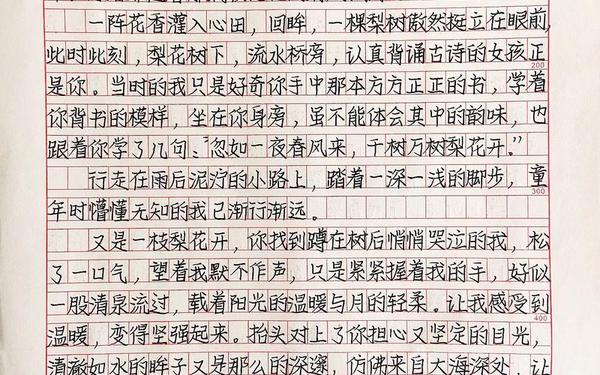 一阵花香灌入心田，回眸，一棵梨树傲然挺立在眼前，
此时此刻，梨花树下，流水桥旁，认真背诵古诗的女孩正
200
是你。当时的我只是好奇你手中那本方方正正的书，学着
你背书的模样，坐在你身旁，虽不能体会其中的韵味，也
跟着你学了几句：“忽如一夜春风来，千树万树梨花开。”
行走在雨后泥泞的小路上，踏着一深一浅的脚步，童
300
年时懵懂无知的我已渐行渐远。
又是一枝梨花开，你找到蹲在树后悄悄哭泣的我，松
了一口气，望着我默不作声，只是紧紧握着我的手，好似
一股清泉流过，载着阳光的温暖与月的轻柔。让我感受到
400
温暖，变得坚强起来。抬头对上了你担心又坚定的目光，
清澈如水的眸子又是那么的深邃，仿佛来自大海深处，让